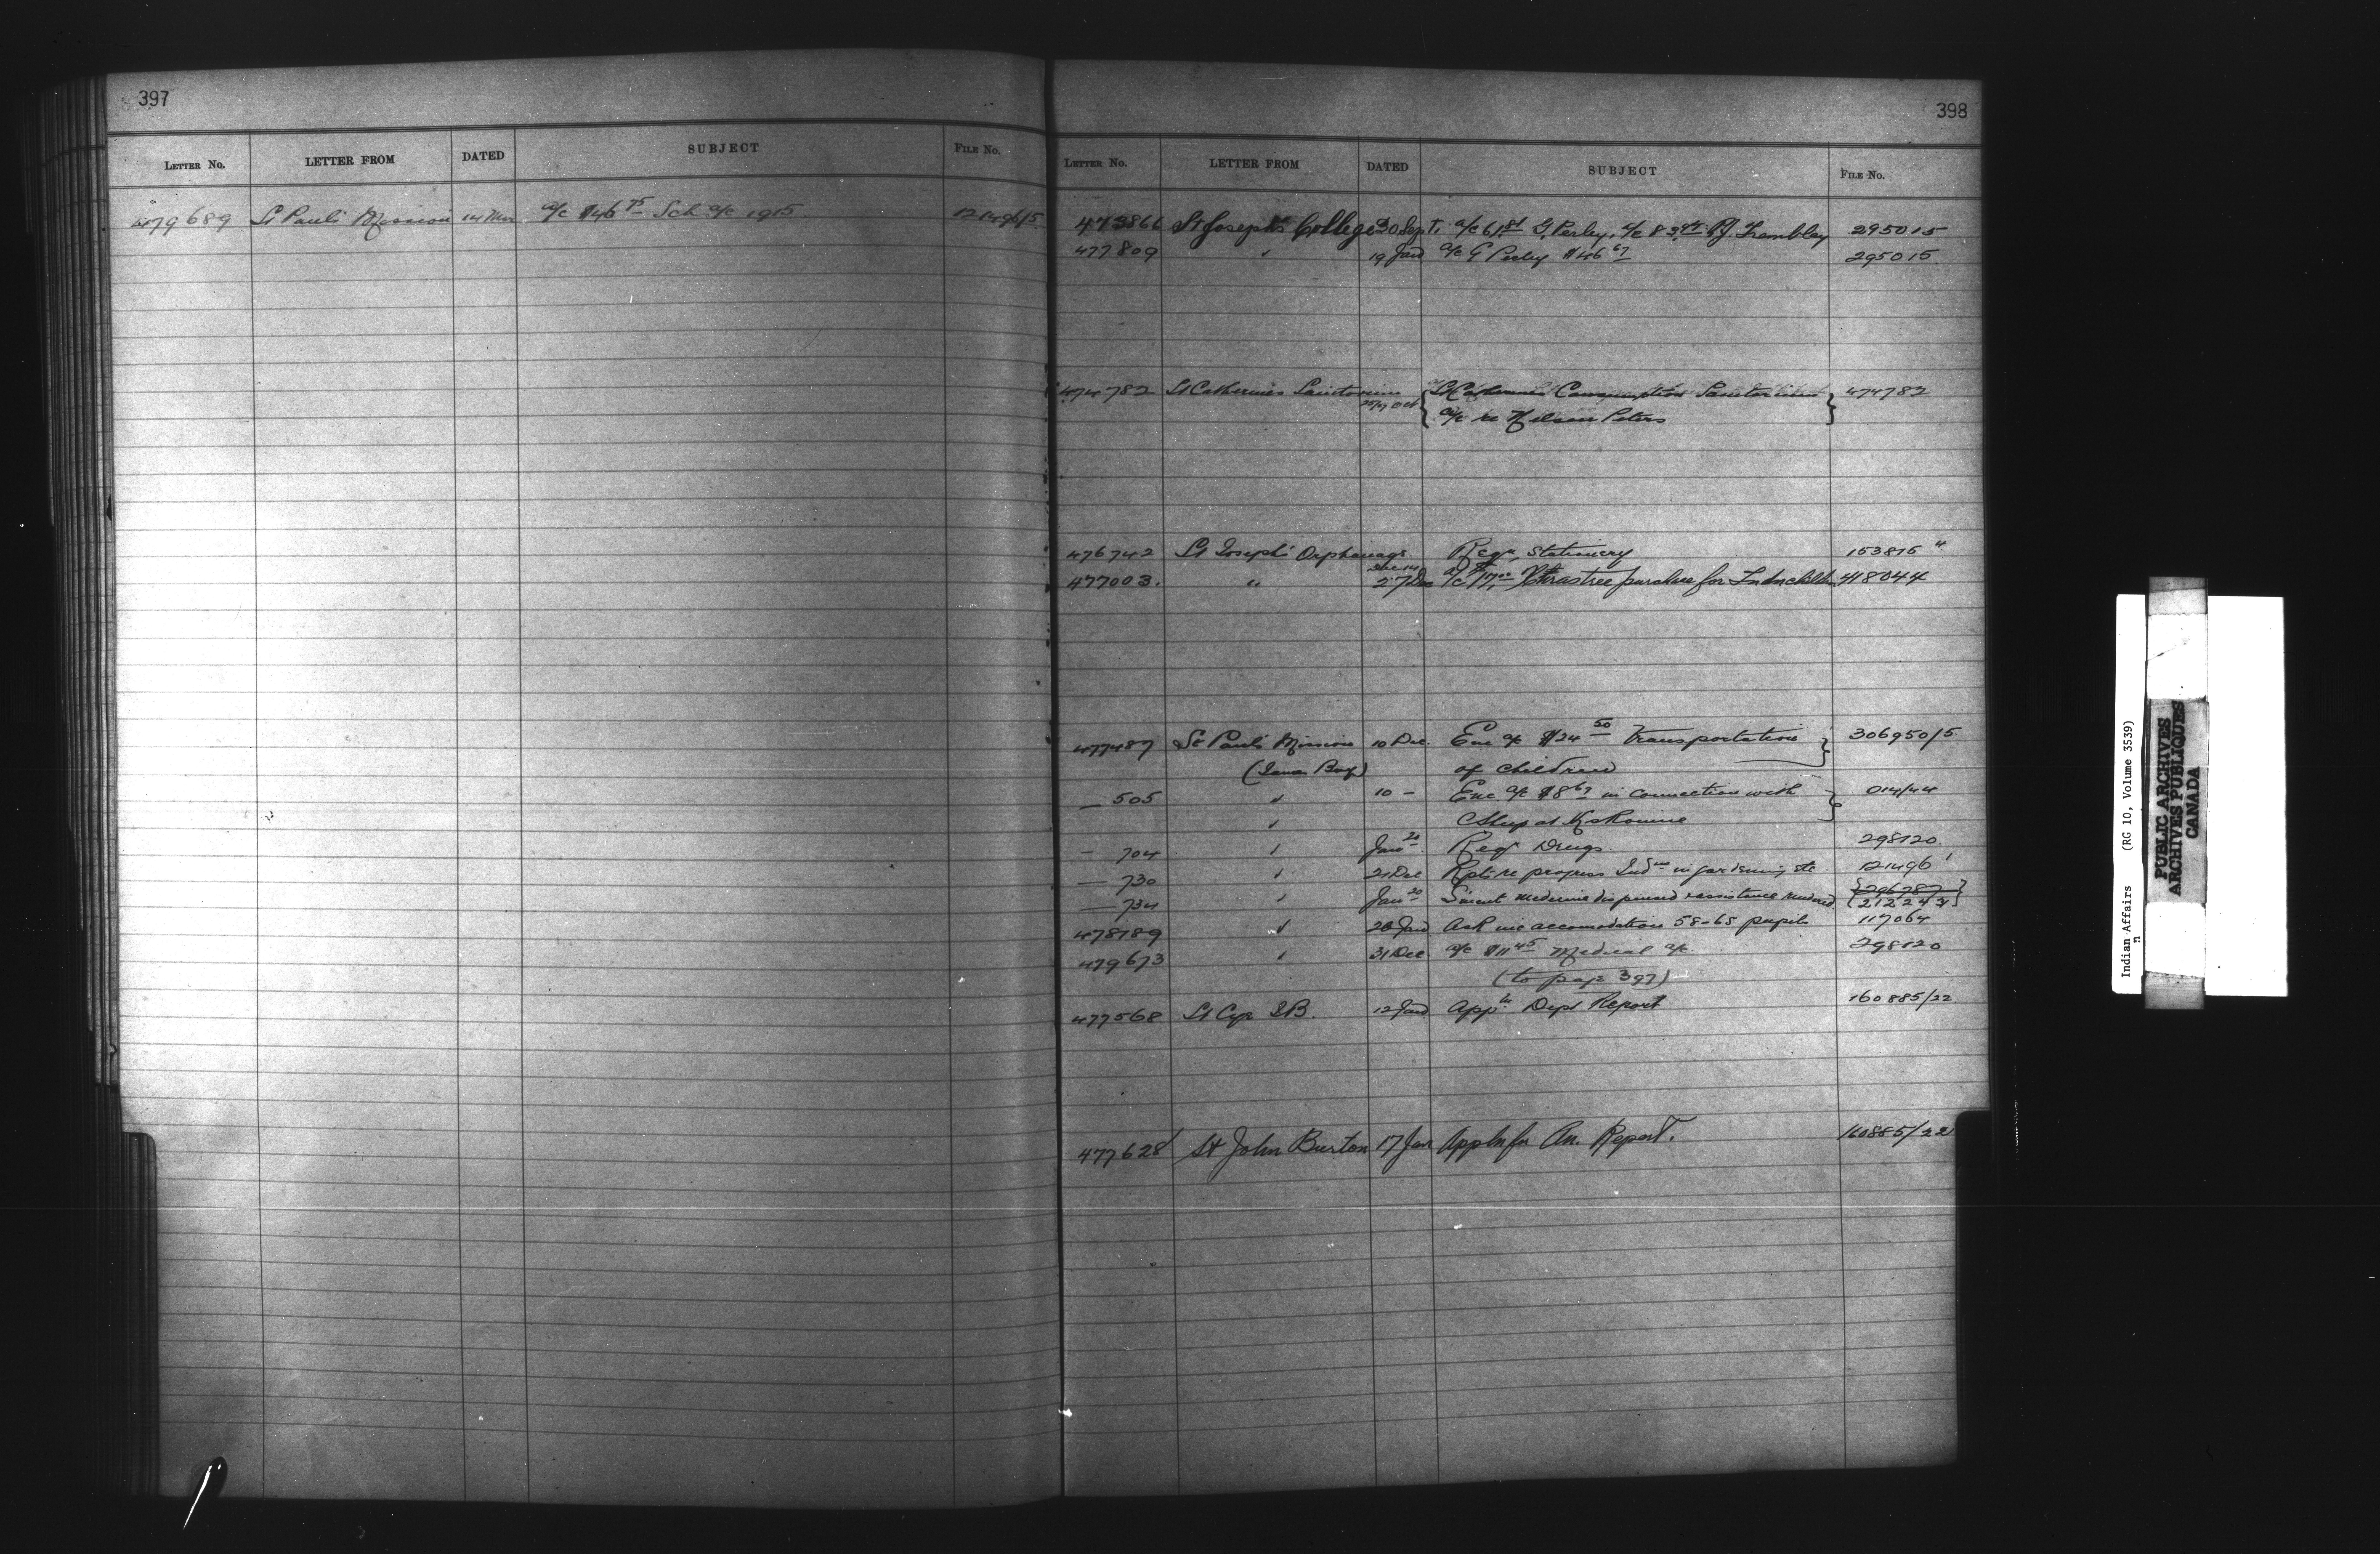 397
LETTER No. LETTER FROM DATED SUBJECT FILE No.
479689 St Paul's Mission 14 Mar a/c $46 75 Sch a/c 1915 121496/5
398
LETTER No. LETTER FROM DATED SUBJECT FILE No.
473866 St Joseph's College 30 Sept. a/c 61 G. Perley, a/c 83 Trembley 295015
477809 " 19 Jan a/c G Perley $46 67 295015
474782 St Catherines Sanitorium St Catherines Consumption Sanitorium 474782
a/c re Nelson Peters
476742 St Joseph's Orphanage Dec 14 Reqn Stationery 153815
477003. " 27 Dec a/c purchase for 418044
477487 St Paul's Mission 10 Dec Enc a/c $24 50 Transportation 306950/5
of children
— 505 " 10 - Enc a/c $8 67 in connection with 014/44
"
- 704 " Jan 20 Reqn Drugs 298120
— 730 " 21 Dec Rpts re progress Inds in gardening etc 121496
— 734 " Jan 20 medicine dispensed & assistance rendered 296787
212243
478189 " 28 Jan Ask inc accomodation 58-65 pupils 117064
479673 " 31 Dec a/c $11 45 Medical a/c 298120
(to page 397)
477568 St Cyr 12 Jan Appn Dept Report 160885/22
477628 St John Burton 17 Jan Appln for An. Report. 160885/22
Indian Affairs (RG 10, Volume 3539)
PUBLIC ARCHIVES
ARCHIVES PUBLIQUES
CANADA